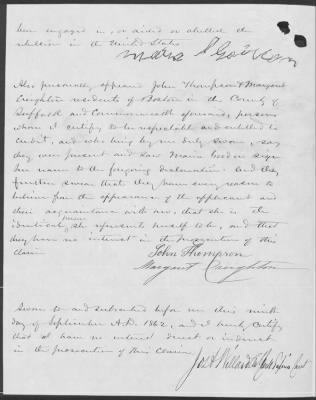 been engaged in, or aided or abetted the
rebellion in the United States.
Maria Gordon
Also personally appeared John Thompson & Margaret
Creighton residents of Boston in the County of
Suffolk and Commonwealth aforesaid, persons
whom I certify to be respectable and entitled to
credit, and who being by me duly sworn, say
they were present and saw Maria Gordon sign
her name to the foregoing declaration and they
further swear that they have every reason to
believe from the appearance of the applicant and
their acquaintance with her, that she is the
identical person she represents herself to be, and that
they have no interest in the prosecution of this
claim.
John Thompson
Margaret Creighton
Sworn to and subscribed before me this ninth
day of September A.D. 1862, and I hereby certify
that I have no interest direct or indirect
in the prosecution of this claim.
Jos. A. Willard Clerk Court